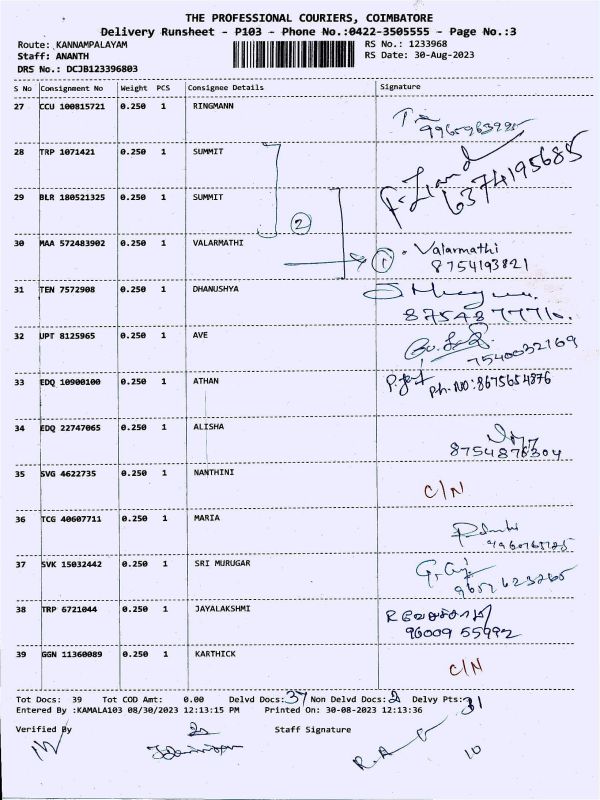 THE PROFESSIONAL COURIERS, COIMBATORE
Delivery Runsheet - P103 - Phone No.:0422-3505555 - Page No.:3
Route: KANNAMPALAYAM RS No.: 1233968
Staff: ANANTH RS Date: 30-Aug-2023
DRS No.: DCJB123396803
S No Consignment No Weight PCS Consignee Details Signature
27 CCU 100815721 0.250 1 RINGMANN
28 TRP 1071421 0.250 1 SUMMIT
6374195685
29 BLR 180521325 0.250 1 SUMMIT
2
30 MAA 572483902 0.250 1 VALARMATHI 1 Valarmathi
8754193821
31 TEN 7572908 0.250 1 DHANUSHYA
32 UPT 8125965 0.250 1 AVE
7540032169
33 EDQ 10900100 0.250 1 ATHAN
Ph.NO:8675654876
34 EDQ 22747065 0.250 1 ALISHA
8754876304
35 SVG 4622735 0.250 1 NANTHINI
C/N
36 TCG 40607711 0.250 1 MARIA
37 SVK 15032442 0.250 1 SRI MURUGAR
38 TRP 6721044 0.250 1 JAYALAKSHMI
96009 55992
39 GGN 11360089 0.250 1 KARTHICK
C/N
Tot Docs: 39 Tot COD Amt: 0.00 Delvd Docs: 37 Non Delvd Docs: 2 Delvy Pts: 31
Entered By :KAMALA103 08/30/2023 12:13:15 PM Printed On: 30-08-2023 12:13:36
Verified By Staff Signature
10